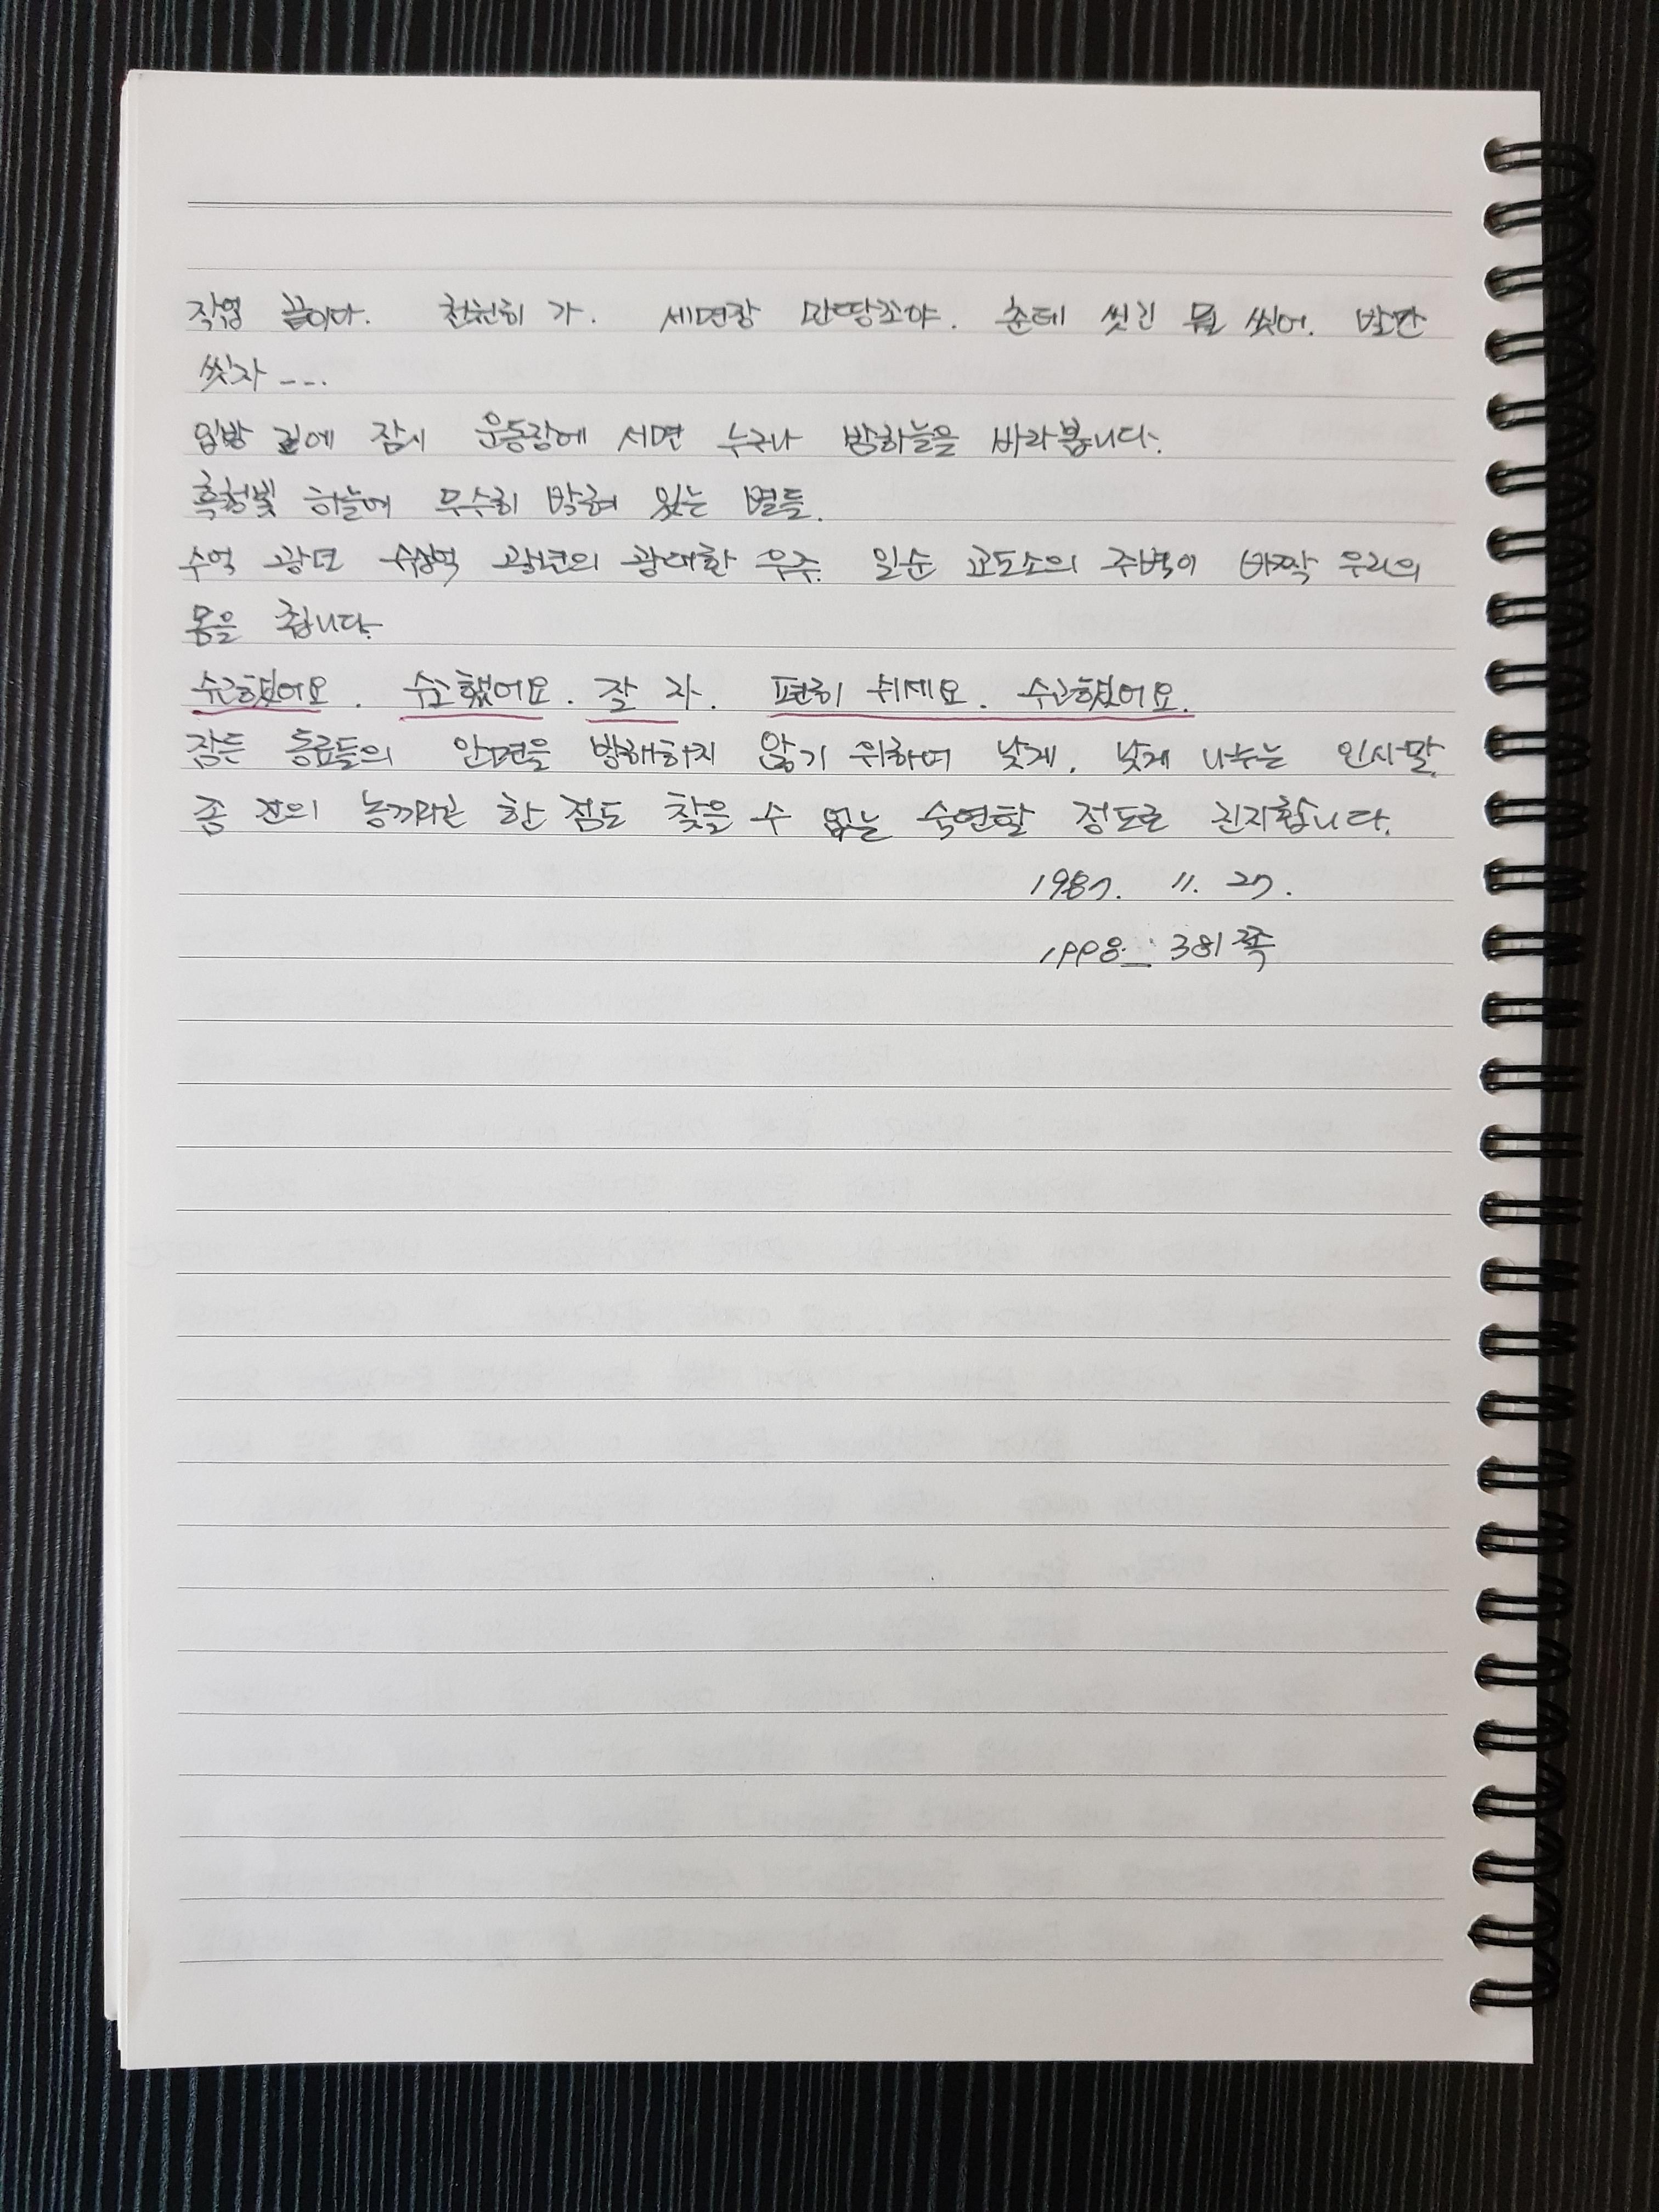 작업 끝이다. 천천히 가. 세면장 만땅꼬야. 춘데 씻긴 뭘 씻어. 발만
씻자 ---.
입방 길에 잠시 운동장에 서면 누구나 밤하늘을 바라봅니다.
흑청빛 하늘에 무수히 박혀 있는 별들.
수억 광년 수십억 광년의 광대한 우주. 일순 교도소의 주벽이 바짝 우리의
몸을 죕니다.
수고했어요. 수고했어요. 잘 자. 편히 쉬세요. 수고했어요.
잠든 동료들의 안면을 방해하지 않기 위하여 낮게, 낮게 나누는 인사말.
좀 전의 농끼라곤 한 점도 찾을 수 없는 숙연할 정도로 진지합니다.
1987. 11. 27.
1998 : 381쪽